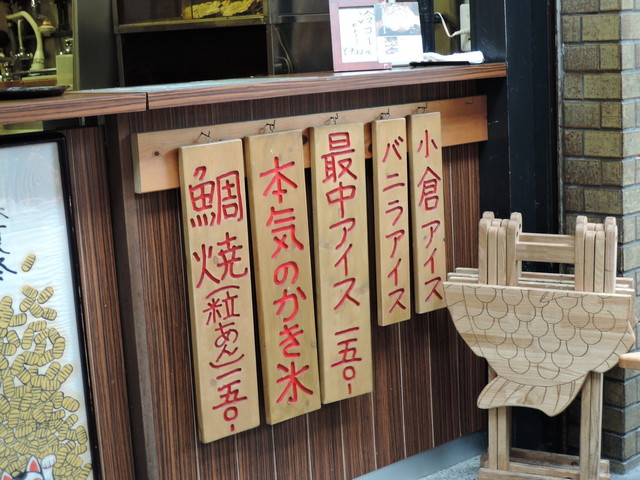 小倉アイス
バニラアイス
最中アイス 一五〇-
本気のかき氷
鯛焼(粒あん)一五〇-